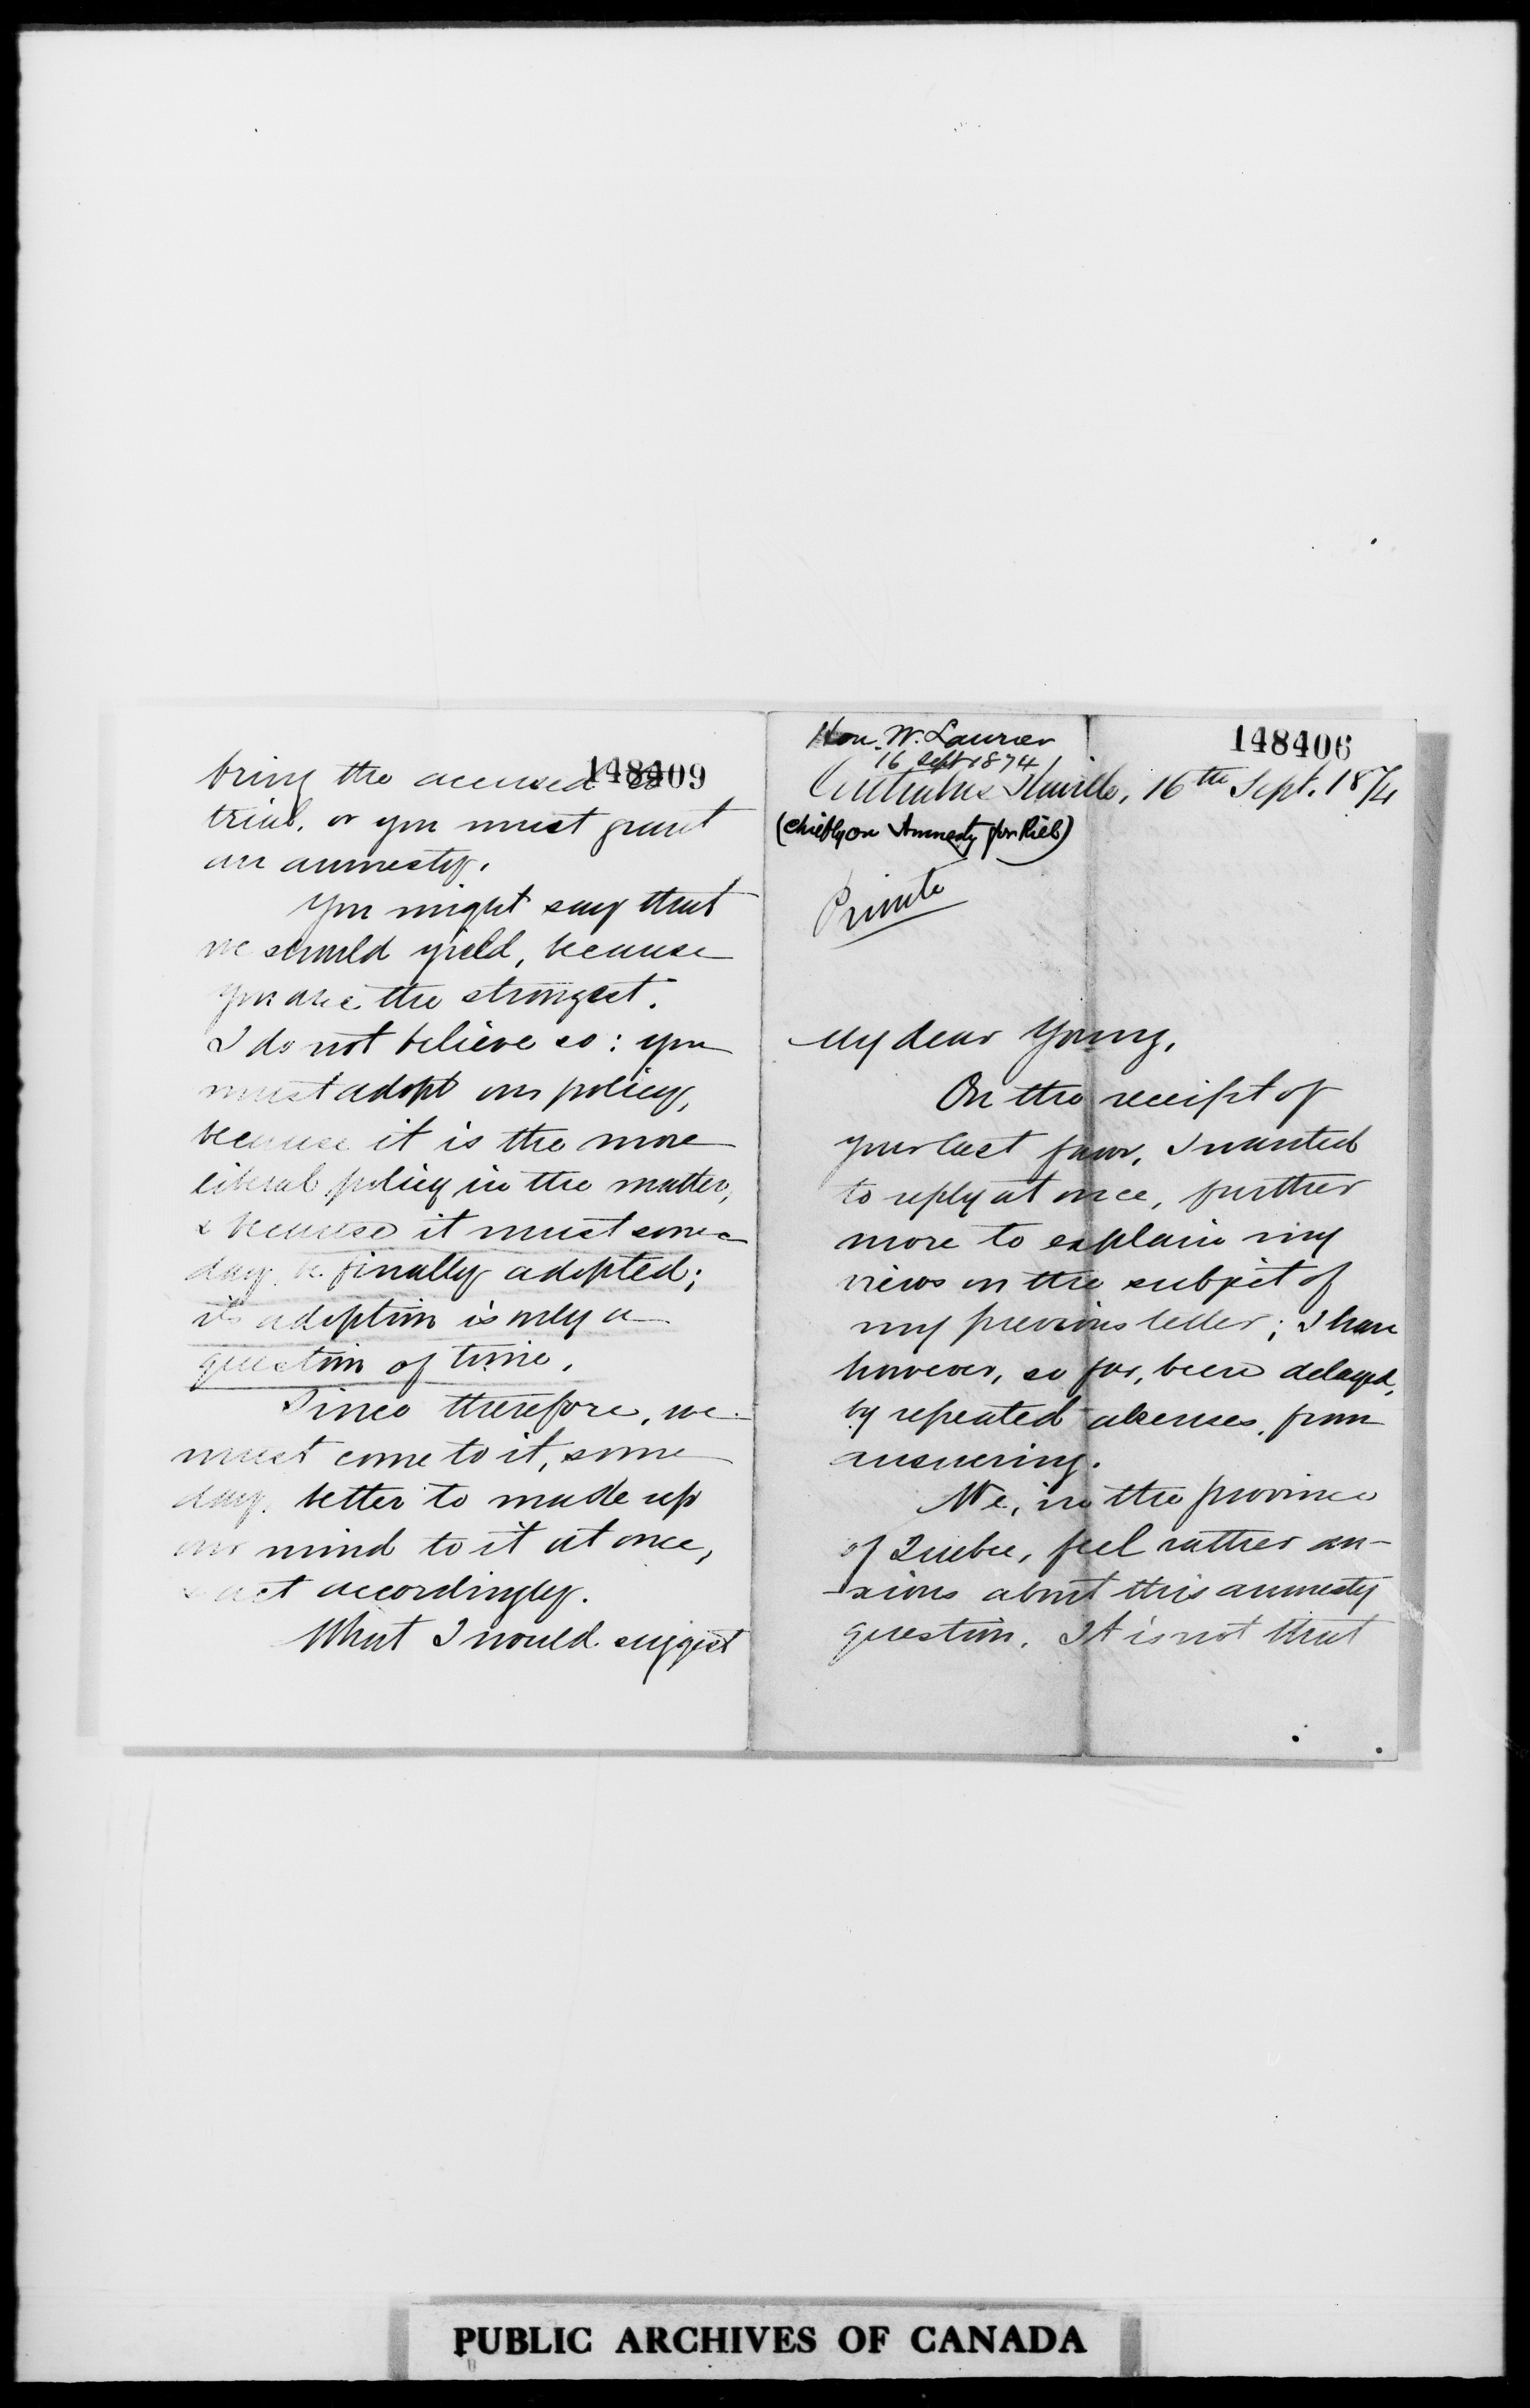 148409
bring the accused to
trial, or you must grant
an amnesty.
You might say that
we should yield, because
you are the strongest.
I do not believe so: you
must adopt our policy,
because it is the more
liberal policy in the matter,
& because it must some
day be finally adopted;
its adoption is only a
question of time.
Since therefore, we
must come to it, some
day, better to make up
our mind to it at once,
& act accordingly.
What I would suggest
148406
Hon. W. Laurier
16 Sept 1874
16th Sept. 1874
(chiefly on Amnesty for Riel)
Private
My dear Young,
On the receipt of
your last favor, I wanted
to reply at once, further
more to explain my
views on the subject of
my previous letter; I have
however, so far, been delayed,
by repeated absences, from
answering.
We, in the province
of Quebec, feel rather an-
-xious about this amnesty
question. It is not that
PUBLIC ARCHIVES OF CANADA